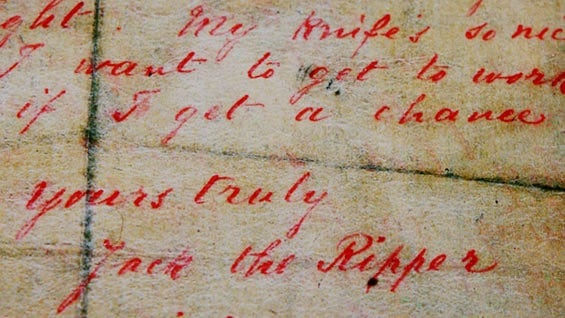 ght. My Knife's so nic
I want to get to work
if I get a chance
yours truly
Jack the Ripper